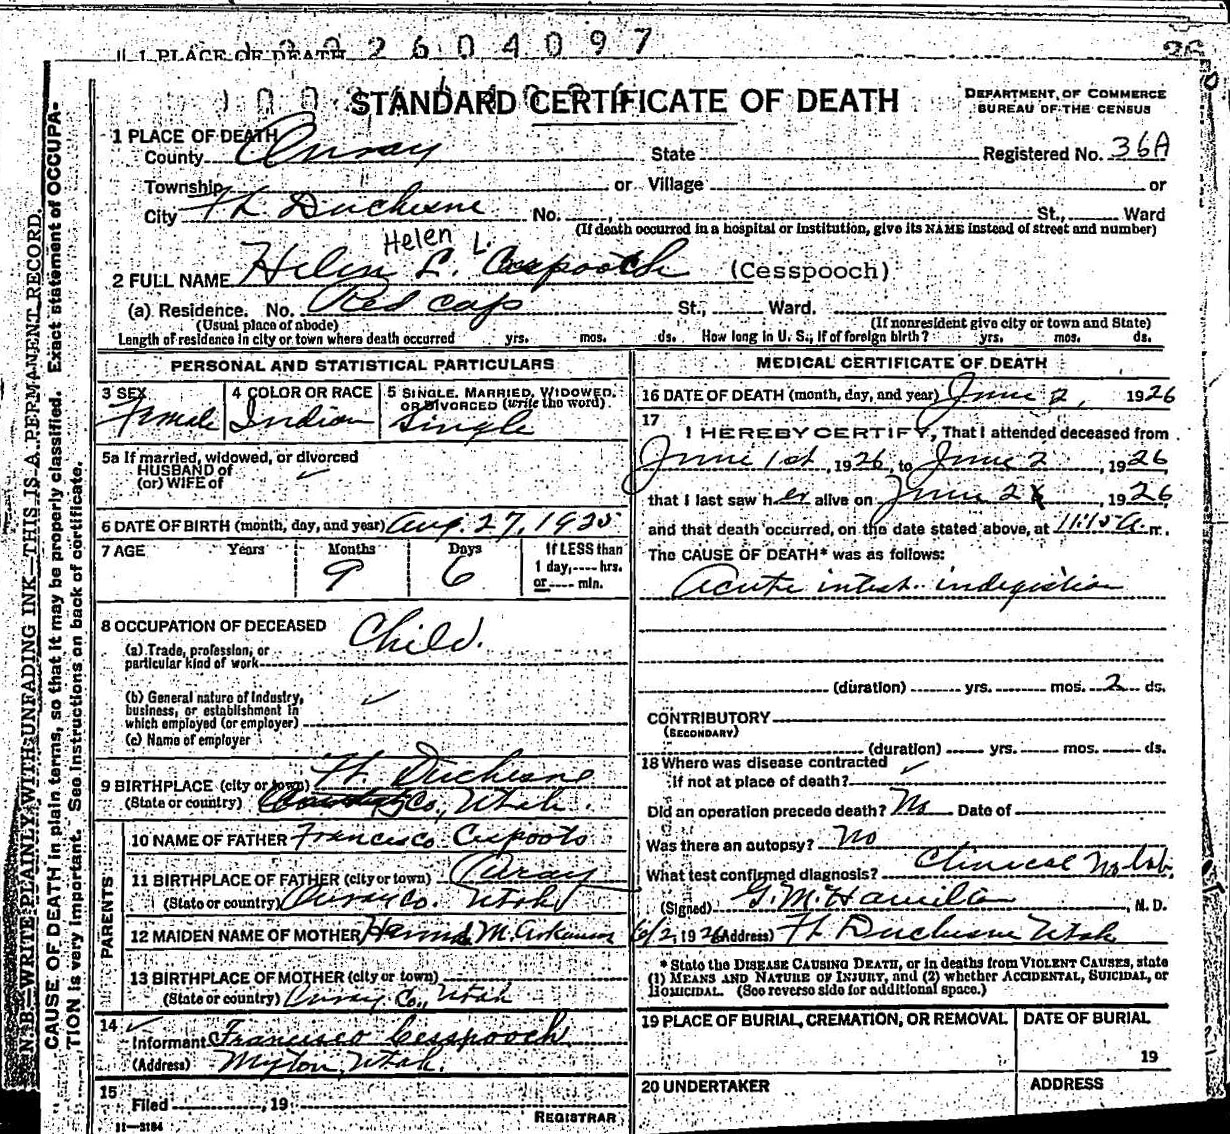 1 PLACE OF DEATH
1002604097
26
STANDARD CERTIFICATE OF DEATH
DEPARTMENT OF COMMERCE
BUREAU OF THE CENSUS
1 PLACE OF DEATH
County Ouray State Registered No. 36A
Township or Village or
City Ft. Duchesne No. , St., Ward
(If death occurred in a hospital or institution, give its NAME instead of street and number)
Helen L.
2 FULL NAME Helen L. Cesspooch (Cesspooch)
(a) Residence. No. Red cap St., Ward.
(Usual place of abode) (If nonresident give city or town and State)
Length of residence in city or town where death occurred yrs. mos. ds. How long in U. S., if of foreign birth? yrs. mos. ds.
PERSONAL AND STATISTICAL PARTICULARS
3 SEX Female
4 COLOR OR RACE Indian
5 SINGLE, MARRIED, WIDOWED, OR DIVORCED (write the word) Single
5a If married, widowed, or divorced
HUSBAND of
(or) WIFE of
6 DATE OF BIRTH (month, day, and year) Aug. 27, 1925
7 AGE Years Months Days If LESS than
9 6 1 day, hrs.
or min.
8 OCCUPATION OF DECEASED Child.
(a) Trade, profession, or
particular kind of work
(b) General nature of industry,
business, or establishment in
which employed (or employer)
(c) Name of employer
9 BIRTHPLACE (city or town) Ft. Duchesne
(State or country) Co., Utah.
PARENTS
10 NAME OF FATHER Francisco
11 BIRTHPLACE OF FATHER (city or town) Ouray
(State or country) Ouray Co. Utah
12 MAIDEN NAME OF MOTHER M.
13 BIRTHPLACE OF MOTHER (city or town)
(State or country) Ouray Co., Utah
14
Informant Francisco Cesspooch
(Address) Myton, Utah.
15
Filed , 19
REGISTRAR
11—3184
MEDICAL CERTIFICATE OF DEATH
16 DATE OF DEATH (month, day, and year) June 2, 1926
17
I HEREBY CERTIFY, That I attended deceased from
June 1st, 1926, to June 2, 1926
that I last saw her alive on June 2, 1926
and that death occurred, on the date stated above, at 11:15 A. m.
The CAUSE OF DEATH* was as follows:
Acute intest. indigestion
(duration) yrs. mos. 2 ds.
CONTRIBUTORY
(SECONDARY)
(duration) yrs. mos. ds.
18 Where was disease contracted
if not at place of death?
Did an operation precede death? No Date of
Was there an autopsy? No
What test confirmed diagnosis? Clinical No lab.
(Signed) G. M. Hamilton, M. D.
6/2, 1926 (Address) Ft Duchesne Utah
* State the DISEASE CAUSING DEATH, or in deaths from VIOLENT CAUSES, state
(1) MEANS AND NATURE OF INJURY, and (2) whether ACCIDENTAL, SUICIDAL, or
HOMICIDAL. (See reverse side for additional space.)
19 PLACE OF BURIAL, CREMATION, OR REMOVAL
DATE OF BURIAL
19
20 UNDERTAKER
ADDRESS
N. B.—WRITE PLAINLY WITH UNFADING INK—THIS IS A PERMANENT RECORD.
CAUSE OF DEATH in plain terms, so that it may be properly classified. Exact statement of OCCUPA-
TION is very important. See instructions on back of certificate.